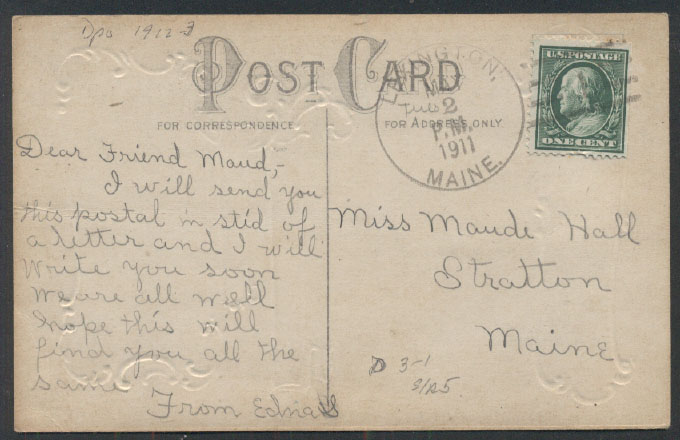 Dpo 1912-3
POST CARD
FOR CORRESPONDENCE
FOR ADDRESS ONLY
MAY
2
P.M.
1911
MAINE.
U.S. POSTAGE
ONE CENT
Dear Friend Maud,-
I will send you
this postal in stid of
a letter and I will
write you soon
we are all well
hope this will
find you all the
same
From Edna
Miss Maude Hall
Stratton
Maine
D 3-1